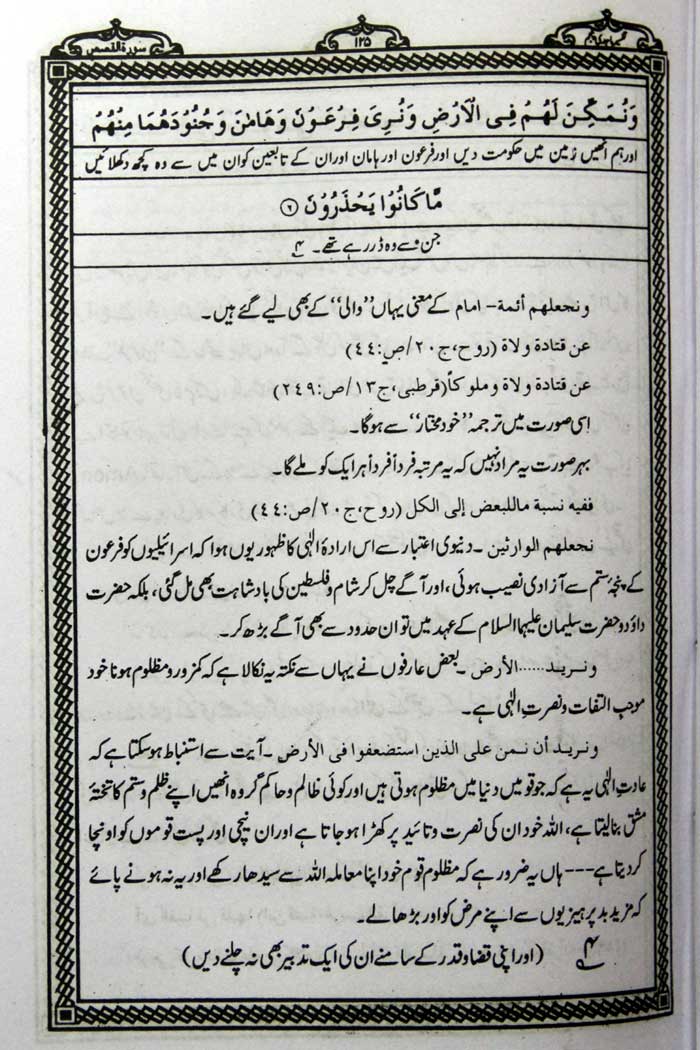 سورة القصص
۱۲۵
وَنُمَكِّنَ لَهُمْ فِی الْاَرْضِ وَنُرِیَ فِرْعَوْنَ وَهَامٰنَ وَجُنُوْدَهُمَا مِنْهُمْ
اور ہم انھیں زمین میں حکومت دیں اور فرعون اور ہامان اور ان کے تابعین کو ان میں سے وہ کچھ دکھلائیں
مَّا كَانُوْا یَحْذَرُوْنَ ﴿۶﴾
جن سے وہ ڈر رہے تھے۔ ۴
ونجعلهم أئمة- امام کے معنی یہاں ”والی“ کے بھی لیے گئے ہیں۔
عن قتادة ولاة (روح، ج۲۰/ص:۴۴)
عن قتادة ولاة وملوكاً (قرطبی، ج۱۳/ص:۲۴۹)
اسی صورت میں ترجمہ ”خود مختار“ سے ہوگا۔
بہر صورت یہ مراد نہیں کہ یہ مرتبہ فرداً فرداً ہر ایک کو ملے گا۔
ففيه نسبة ماللبعض إلى الكل (روح، ج۲۰/ص:۴۴)
نجعلهم الوارثين۔ دنیوی اعتبار سے اس ارادۂ الٰہی کا ظہور یوں ہوا کہ اسرائیلیوں کو فرعون
کے پنجۂ ستم سے آزادی نصیب ہوئی، اور آگے چل کر شام و فلسطین کی بادشاہت بھی مل گئی، بلکہ حضرت
داؤد و حضرت سلیمان علیہما السلام کے عہد میں تو ان حدود سے بھی آگے بڑھ کر۔
ونريد......الأرض۔ بعض عارفوں نے یہاں سے نکتہ یہ نکالا ہے کہ کمزور و مظلوم ہونا خود
موجب التفات و نصرتِ الٰہی ہے۔
ونريد أن نمن على الذين استضعفوا فى الأرض۔ آیت سے استنباط ہو سکتا ہے کہ
عادتِ الٰہی یہ ہے کہ جو قومیں دنیا میں مظلوم ہوتی ہیں اور کوئی ظالم و حاکم گروہ انھیں اپنے ظلم و ستم کا تختۂ
مشق بنا لیتا ہے، اللہ خود ان کی نصرت و تائید پر کھڑا ہو جاتا ہے اور ان نیچی اور پست قوموں کو اونچا
کر دیتا ہے--- ہاں یہ ضرور ہے کہ مظلوم قوم خود اپنا معاملہ اللہ سے سیدھا رکھے اور یہ نہ ہونے پائے
کہ مزید بد پرہیزیوں سے اپنے مرض کو اور بڑھا لے۔
۴ (اور اپنی قضا و قدر کے سامنے ان کی ایک تدبیر بھی نہ چلنے دیں)